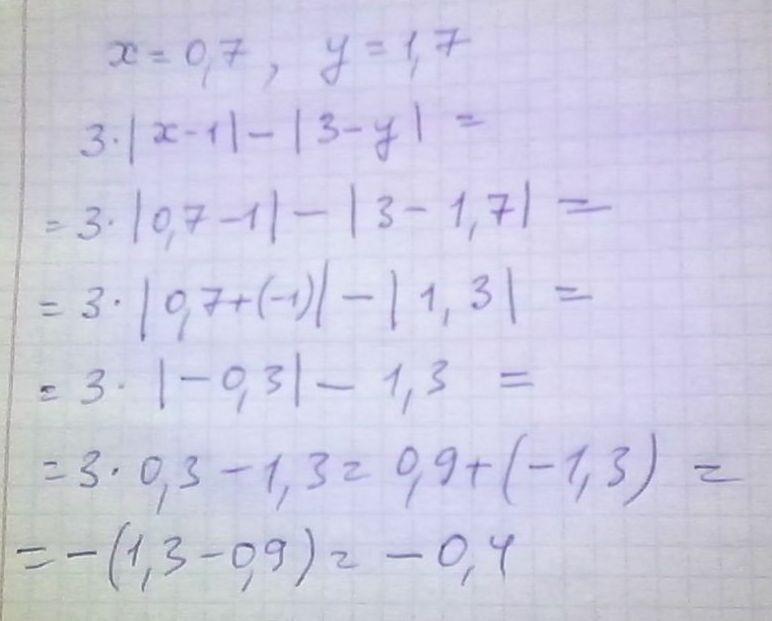 x = 0,7 , y = 1,7
3·|x-1| - |3-y| =
= 3·|0,7-1| - |3-1,7| =
= 3·|0,7+(-1)| - |1,3| =
= 3·|-0,3| - 1,3 =
= 3·0,3 - 1,3 = 0,9+(-1,3) =
= -(1,3-0,9) = -0,4